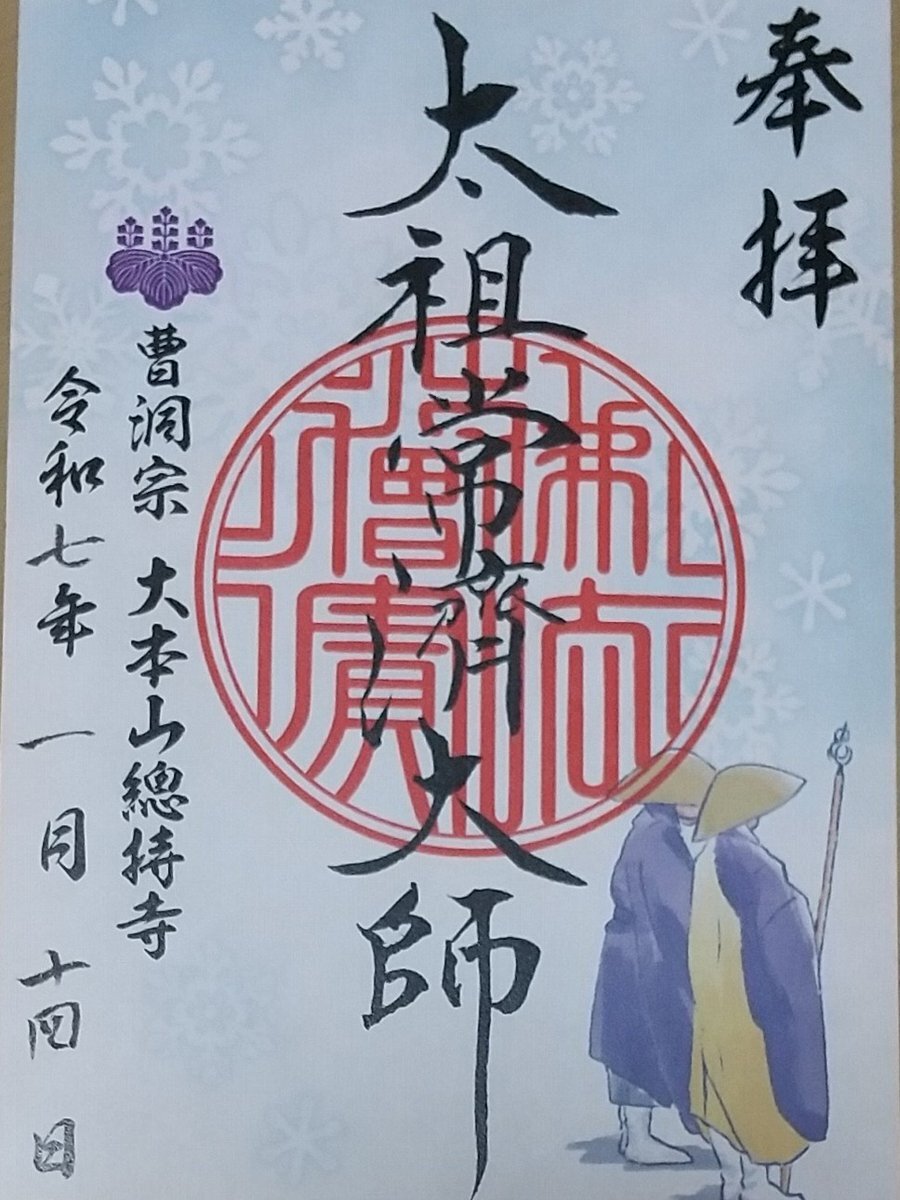 奉拝
太祖常濟大師
佛法僧寶
曹洞宗 大本山總持寺
令和七年 一月 十四日